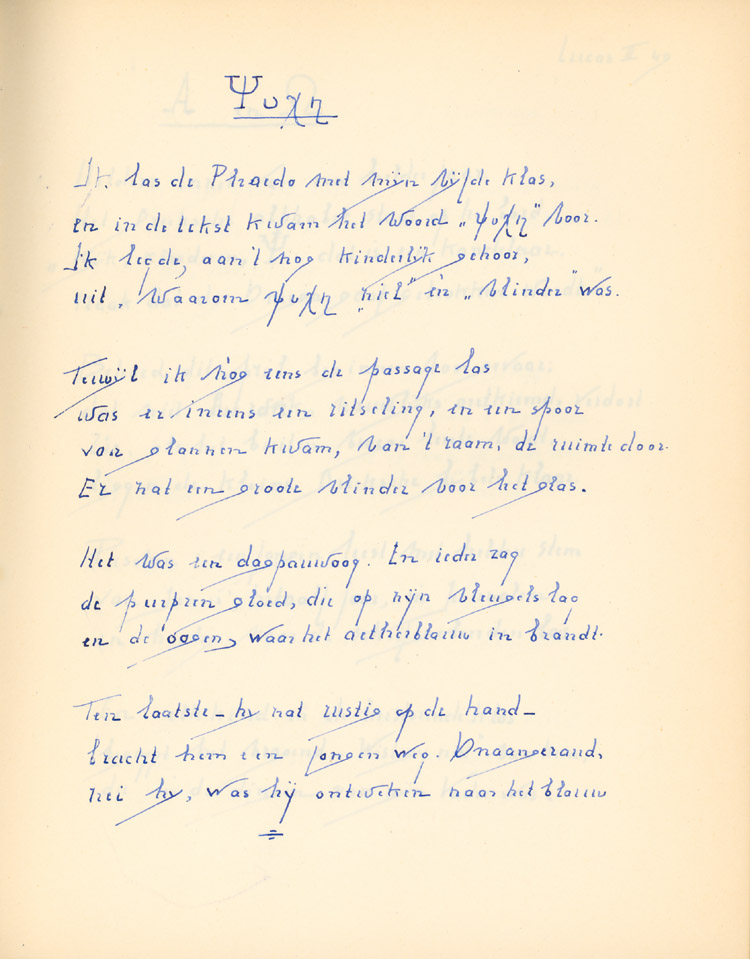 Ψυχη
Ik las de Phaedo met mijn vijfde klas,
en in de tekst kwam het woord „ψυχη" voor.
Ik legde, aan 't nog kinderlijk gehoor,
uit, waarom ψυχη „ziel" èn „vlinder" was.
Terwijl ik nog eens de passage las
was er ineens een ritseling, en een spoor
van glanzen kwam, van 't raam, de ruimte door.
Er zat een groote vlinder voor het glas.
Het was een dagpauwoog. En ieder zag
de purpren gloed, die op zijn vleugels lag
en de oogen, waar het aetherblauw in brandt.
Ten laatste – hy zat rustig op de hand –
bracht hem een jongen weg. Onaangerand,
zei hy, was hij ontweken naar het blauw